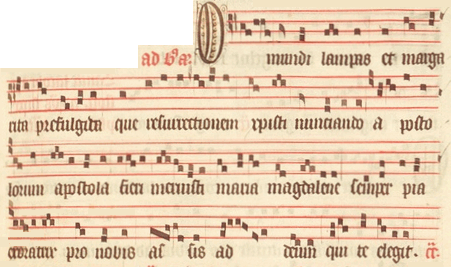 ad b's a: O mundi lampas et marga
rita prefulgida que resurrectionem xpisti nunciando a posto
lorum apostola fieri meruisti maria magdalene semper pia
exoratrix pro nobis as sis ad deum qui te elegit.